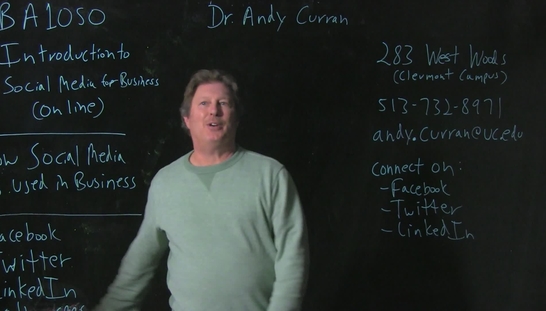 BA1050
Introduction to
Social Media for Business
(online)
Social Media
used in Business
acebook
witter
inkedIn
Dr. Andy Curran
283 West Woods
(Clermont Campus)
513-732-8971
andy.curran@uc.edu
Connect on:
-Facebook
-Twitter
-LinkedIn